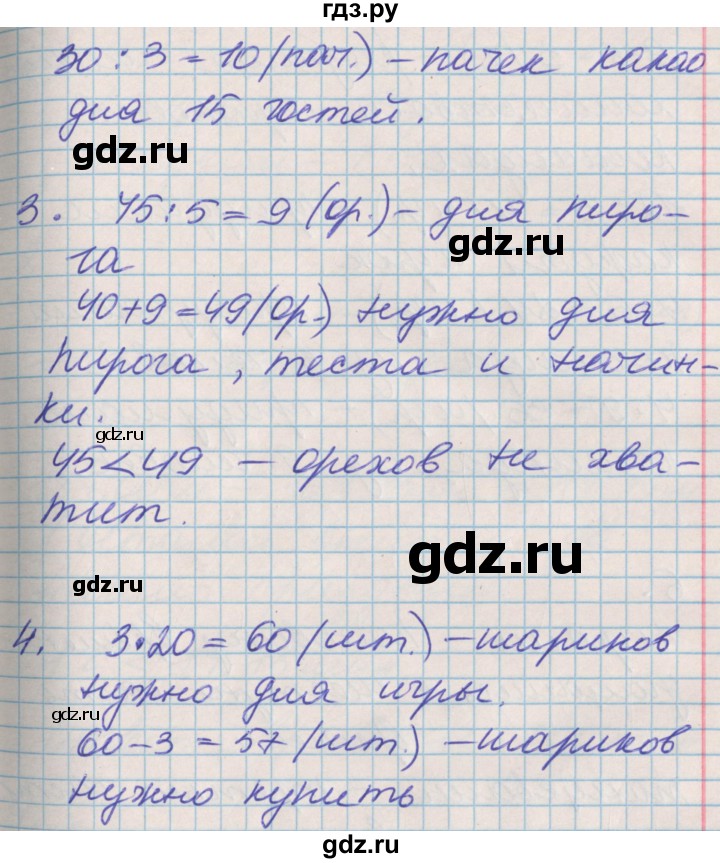 гдз.ру
30 : 3 = 10 (пач.) – пачек какао
для 15 гостей.
gdz.ru
3. 45 : 5 = 9 (ор.) – для пиро-
gdz.ru
га
40 + 9 = 49 (ор.) нужно для
пирога, теста и начин-
ки.
gdz.ru
45 < 49 – орехов не хва-
тит.
gdz.ru
gdz.ru
4. 3 · 20 = 60 (шт.) – шариков
нужно для игры.
gdz.ru
60 – 3 = 57 (шт.) – шариков
нужно купить
gdz.ru